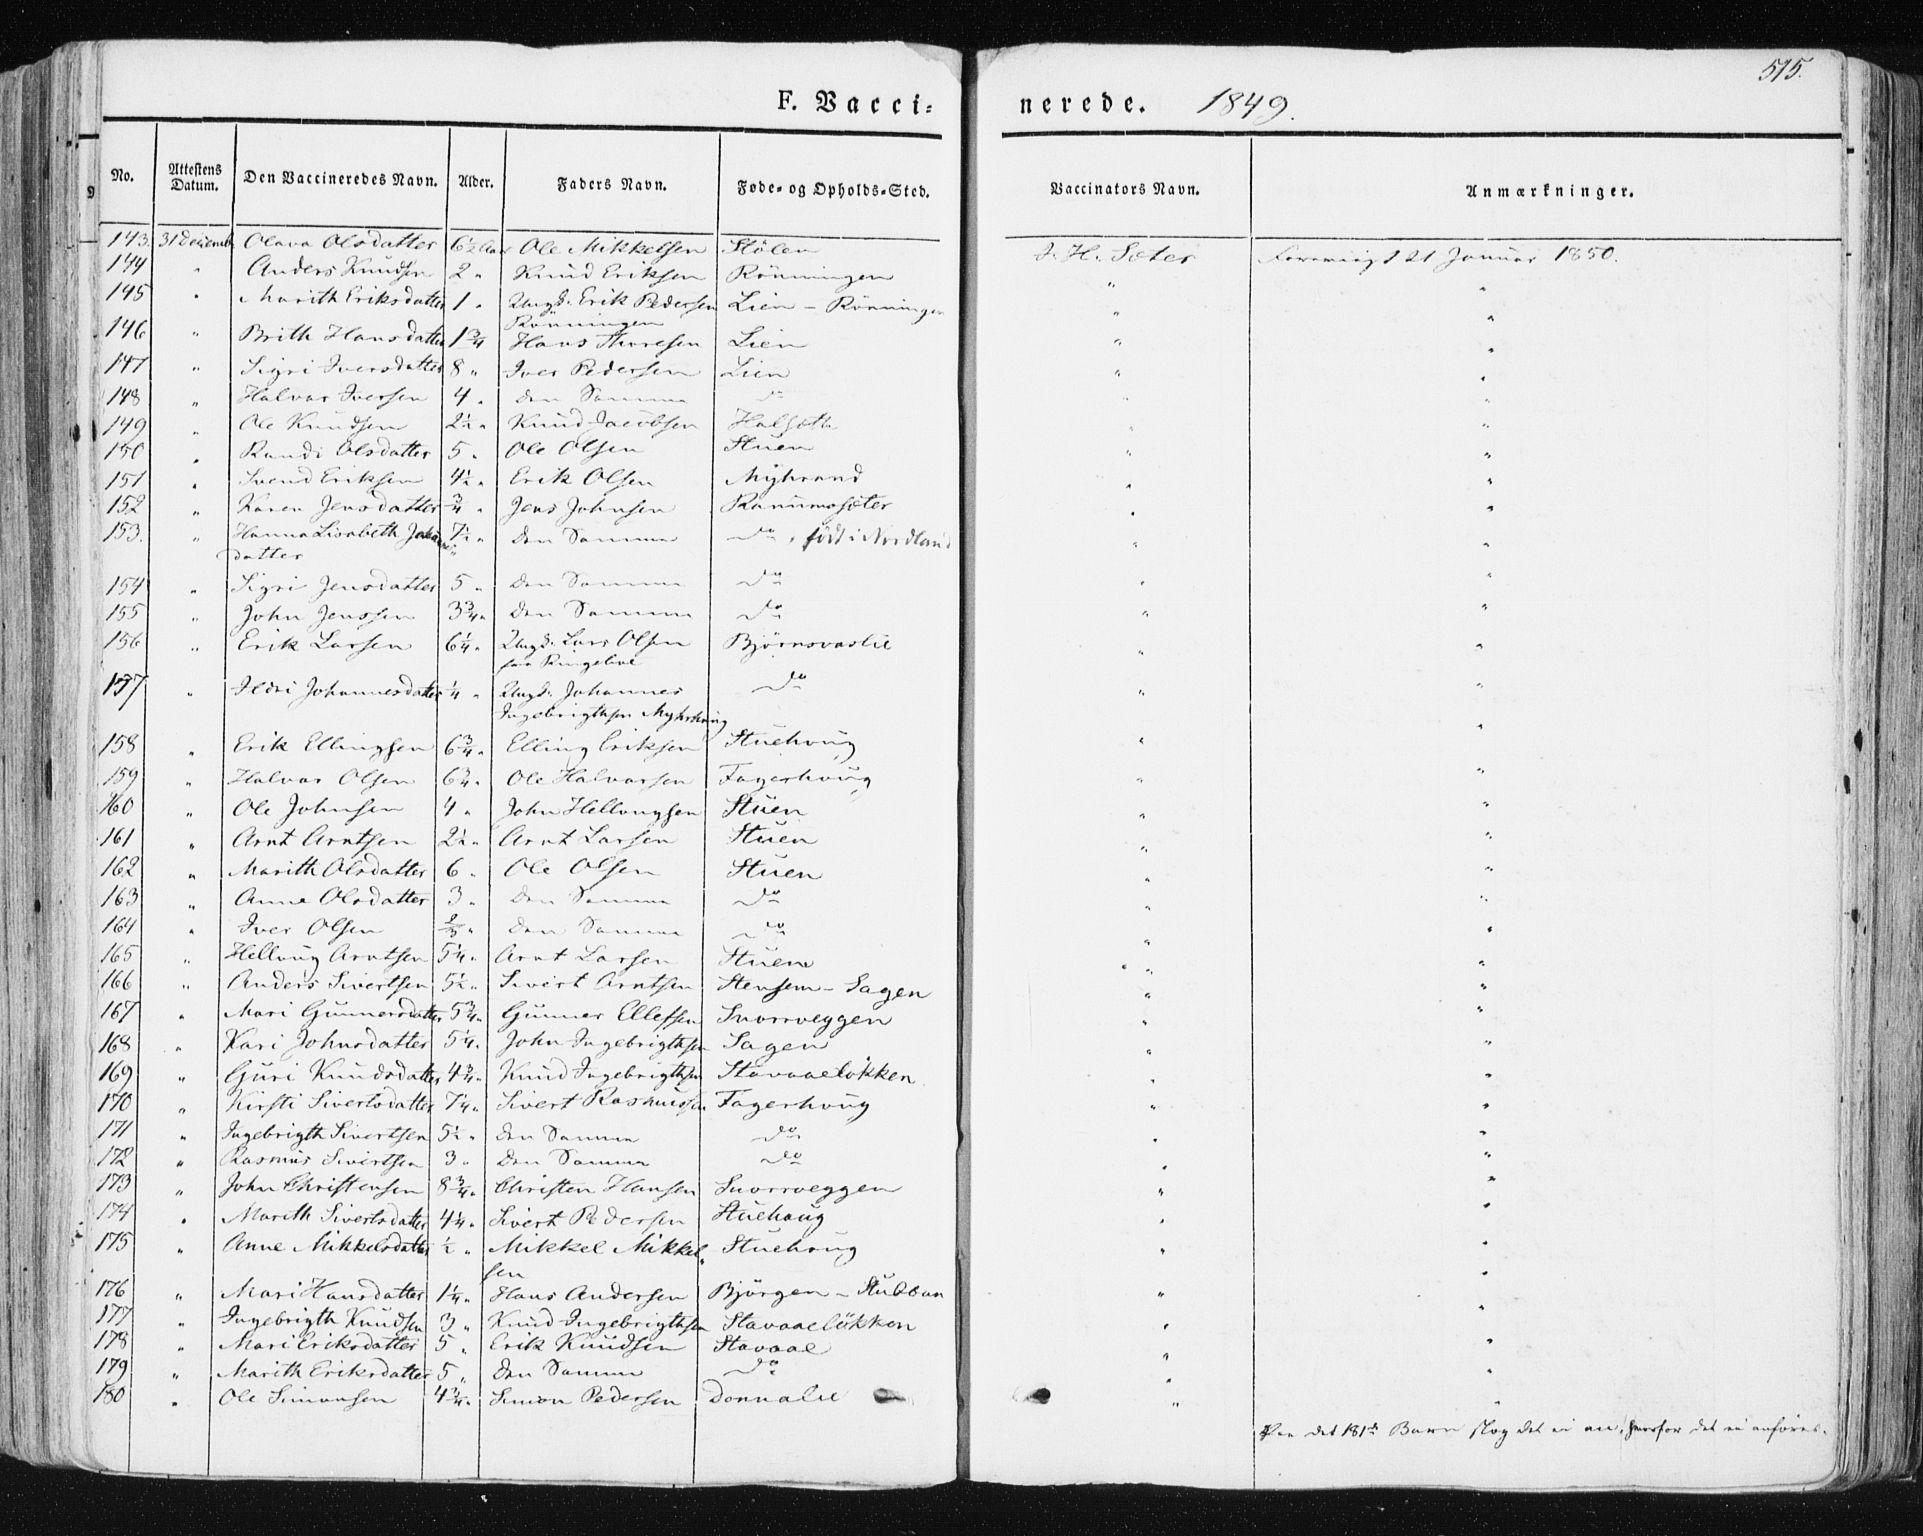 515.
F. Vacci= nerede. 1849.
No. Attestens Datum. Den Vaccineredes Navn. Alder. Faders Navn. Føde- og Opholds-Sted. Vaccinators Navn. Anmærkninger.
143. 31 Decemb. Olava Olsdatter 6½ Aar Ole Mikkelsen Stölen J. H. Sæter Foreviist 21 Januar 1850.
144 " Anders Knudsen 2 " Knud Eriksen Rönningen " "
145 " Marith Eriksdatter 1 " Ungk. Erik Pedersen Lien – Rönningen " "
Rönningen
146 " Brith Hansdatter 1¾ Hans Thoresen Lien " "
147 " Sigri Iversdatter 8 " Iver Pedersen Lien " "
148 " Halvar Iversen 4 " den Samme do " "
149 " Ole Knudsen 2½ " Knud Jacobsen Halsætte " "
150 " Randi Olsdatter 5 " Ole Olsen Stuen " "
151 " Svend Eriksen 4½ " Erik Olsen Myhrand " "
152 " Karen Jensdatter ¾ " Jens Johnsen Ranumsæter " "
153. " Hanna Lisabeth 7½ " den Samme do, født i Nordland " "
datter
154 " Sigri Jensdatter 5 " den Samme do " "
155 " John Jenssen 3¾ " den Samme do " "
156 " Erik Larsen 6¼ " Ungk. Lars Olsen Björnsvaslie " "
157 " Ildri Johannesdatter ¼ " Ungk. Johannes do " "
Ingebrigtsen Myhrhoug
158 " Erik Ellingsen 6¾ " Elling Eriksen Stuehoug " "
159 " Halvar Olsen 6¾ " Ole Halvarsen Fagerhoug " "
160 " Ole Johnsen 4 " John Hellougsen Stuen " "
161 " Arnt Arntsen 2½ " Arnt Larsen Stuen " "
162 " Marith Olsdatter 6 " Ole Olsen Stuen " "
163 " Anne Olsdatter 3 " den Samme do " "
164 " Iver Olsen ⅔ " den Samme do " "
165 " Helloug Arntsen 5¼ " Arnt Larsen Stuen " "
166 " Anders Sivertsen 5½ " Sivert Arntsen Stensem – Sagen " "
167 " Mari Gunnersdatter 5¾ " Gunner Ellefsen Snorroeggen " "
168 " Kari Johnsdatter 5¼ " John Ingebrigtsen Sagen " "
169 " Guri Knudsdatter 4¾ " Knud Ingebrigtsen Stavaaelökken " "
170 " Kirsti Sivertsdatter 7¼ " Sivert Rasmussen Fagerhoug " "
171 " Ingebrigth Sivertsen 5½ " den Samme do " "
172 " Rasmus Sivertsen 3 " den Samme do " "
173 " John Christensen 8¾ " Christen Hansen Snorroeggen " "
174 " Marith Sivertsdatter 4¼ " Sivert Pedersen Stuehoug " "
175 " Anne Mikkelsdatter ½ " Mikkel Mikkel- Stuehoug " "
sen
176 " Mari Hansdatter 1¼ " Hans Andersen Björgen – " "
177 " Ingebrigth Knudsen 3 " Knud Ingebrigtsen Stavaaelökken " "
178 " Mari Eriksdatter 5 " Erik Knudsen Stavaae " "
179 " Marith Eriksdatter 5 " den Samme do " "
180 " Ole Simonsen 4¾ " Simon Pedersen Donnalie " "
Paa det 181de Barn slog det ei an, hvorfor det ei anføres.